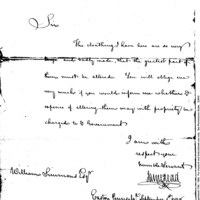 Sir
The cloathing I have here are so very
large and badly made, that the greatest part of
them must be altered. You will oblige me
very much if you would inform me whether the
expence of altering them may with propriety be
charged to the Government
I am with
respect your
humble Servant
William Simmons Esqr